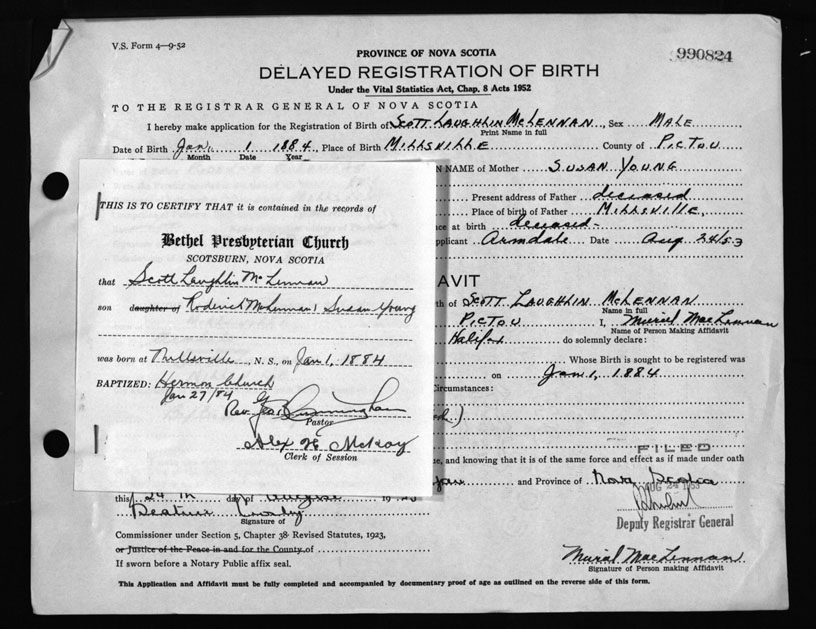 V.S. Form 4—9-52
990824
PROVINCE OF NOVA SCOTIA
DELAYED REGISTRATION OF BIRTH
Under the Vital Statistics Act, Chap. 8 Acts 1952
TO THE REGISTRAR GENERAL OF NOVA SCOTIA
I hereby make application for the Registration of Birth of SCOTT LAUGHLIN McLENNAN, Sex MALE
Print Name in full
Date of Birth Jan. 1 1884, Place of Birth MILLSVILLE County of PICTOU
Month Date Year
NAME of Mother SUSAN YOUNG
Present address of Father deceased
Place of birth of Father MILLSVILLE
at birth deceased
Armdale Date Aug 24/53
THIS IS TO CERTIFY THAT it is contained in the records of
Bethel Presbyterian Church
SCOTSBURN, NOVA SCOTIA
that Scott Laughlin McLennan
son daughter of Roderick McLennan & Susan Young
was born at Millsville, N. S., on Jan 1, 1884
BAPTIZED: Hermon Church
Jan 27/84
Rev. Geo. Cunningham
Pastor
Alex H. McKay
Clerk of Session
AVIT
th of SCOTT LAUGHLIN McLENNAN
Name in full
PICTOU I, Muriel MacLennan
Name of Person Making Affidavit
Halifax do solemnly declare:
Whose Birth is sought to be registered was
on Jan 1, 1884
Circumstances:
FILED
ue, and knowing that it is of the same force and effect as if made under oath
and Province of Nova Scotia
AUG 24 1953
Deputy Registrar General
this 24th day of August 19
Beatrice
Signature of
Commissioner under Section 5, Chapter 38 Revised Statutes, 1923,
or Justice of the Peace in and for the County of
If sworn before a Notary Public affix seal.
Muriel MacLennan
Signature of Person making Affidavit
This Application and Affidavit must be fully completed and accompanied by documentary proof of age as outlined on the reverse side of this form.